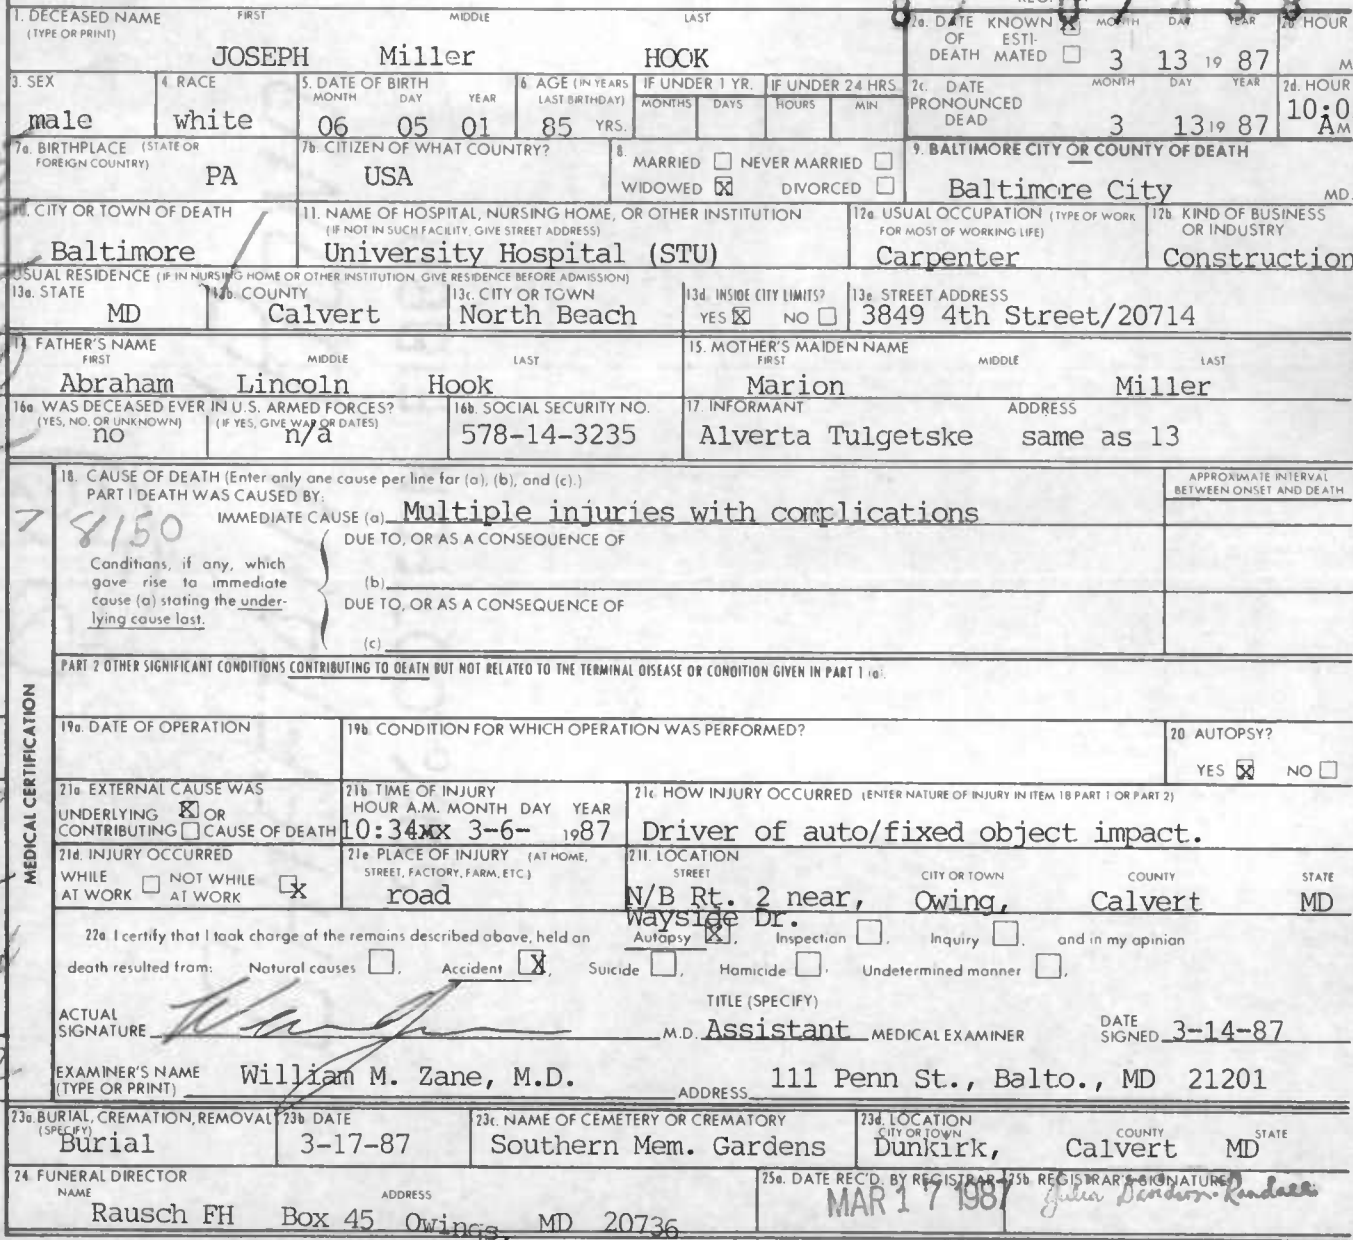 1. DECEASED NAME FIRST MIDDLE LAST
(TYPE OR PRINT)
JOSEPH Miller HOOK
2a. DATE KNOWN X MONTH DAY YEAR 2b HOUR
OF ESTI-
DEATH MATED 3 13 19 87 M
3. SEX male
4. RACE white
5. DATE OF BIRTH
MONTH DAY YEAR
06 05 01
6 AGE (IN YEARS
LAST BIRTHDAY)
85 YRS.
IF UNDER 1 YR.
MONTHS DAYS
IF UNDER 24 HRS
HOURS MIN
2c. DATE MONTH DAY YEAR
PRONOUNCED
DEAD 3 13 19 87
2d. HOUR
10:0
AM
7a. BIRTHPLACE (STATE OR
FOREIGN COUNTRY)
PA
7b. CITIZEN OF WHAT COUNTRY?
USA
8.
MARRIED NEVER MARRIED
WIDOWED X DIVORCED
9. BALTIMORE CITY OR COUNTY OF DEATH
Baltimore City MD.
10. CITY OR TOWN OF DEATH
Baltimore
11. NAME OF HOSPITAL, NURSING HOME, OR OTHER INSTITUTION
(IF NOT IN SUCH FACILITY, GIVE STREET ADDRESS)
University Hospital (STU)
12a USUAL OCCUPATION (TYPE OF WORK
FOR MOST OF WORKING LIFE)
Carpenter
12b. KIND OF BUSINESS
OR INDUSTRY
Construction
USUAL RESIDENCE (IF IN NURSING HOME OR OTHER INSTITUTION GIVE RESIDENCE BEFORE ADMISSION)
13a. STATE
MD
13b. COUNTY
Calvert
13c. CITY OR TOWN
North Beach
13d INSIDE CITY LIMITS?
YES X NO
13e STREET ADDRESS
3849 4th Street/20714
14 FATHER'S NAME
FIRST MIDDLE LAST
Abraham Lincoln Hook
15. MOTHER'S MAIDEN NAME
FIRST MIDDLE LAST
Marion Miller
16a WAS DECEASED EVER IN U.S. ARMED FORCES?
(YES, NO, OR UNKNOWN) (IF YES, GIVE WAR OR DATES)
no n/a
16b. SOCIAL SECURITY NO.
578-14-3235
17. INFORMANT ADDRESS
Alverta Tulgetske same as 13
MEDICAL CERTIFICATION
18. CAUSE OF DEATH (Enter only one cause per line for (a), (b), and (c).)
PART I DEATH WAS CAUSED BY:
APPROXIMATE INTERVAL
BETWEEN ONSET AND DEATH
8150
IMMEDIATE CAUSE (a) Multiple injuries with complications
DUE TO, OR AS A CONSEQUENCE OF
Conditions, if any, which
gave rise to immediate
cause (a) stating the under-
lying cause last.
(b)
DUE TO, OR AS A CONSEQUENCE OF
(c)
PART 2 OTHER SIGNIFICANT CONDITIONS CONTRIBUTING TO DEATH BUT NOT RELATED TO THE TERMINAL DISEASE OR CONDITION GIVEN IN PART 1 (a).
19a. DATE OF OPERATION
19b CONDITION FOR WHICH OPERATION WAS PERFORMED?
20 AUTOPSY?
YES X NO
21a EXTERNAL CAUSE WAS
UNDERLYING X OR
CONTRIBUTING CAUSE OF DEATH
21b TIME OF INJURY
HOUR A.M. MONTH DAY YEAR
10:34xx 3-6- 1987
21c HOW INJURY OCCURRED (ENTER NATURE OF INJURY IN ITEM 18 PART 1 OR PART 2)
Driver of auto/fixed object impact.
21d. INJURY OCCURRED
WHILE NOT WHILE
AT WORK AT WORK X
21e PLACE OF INJURY (AT HOME,
STREET, FACTORY, FARM, ETC.)
road
21f. LOCATION
STREET CITY OR TOWN COUNTY STATE
N/B Rt. 2 near, Owing, Calvert MD
Wayside Dr.
22a I certify that I took charge of the remains described above, held an Autopsy X, Inspection , Inquiry , and in my opinion
death resulted from: Natural causes , Accident X, Suicide , Homicide , Undetermined manner ,
ACTUAL
SIGNATURE
TITLE (SPECIFY)
M.D. Assistant MEDICAL EXAMINER
DATE
SIGNED 3-14-87
EXAMINER'S NAME
(TYPE OR PRINT) William M. Zane, M.D.
ADDRESS 111 Penn St., Balto., MD 21201
23a BURIAL, CREMATION, REMOVAL
(SPECIFY)
Burial
23b DATE
3-17-87
23c. NAME OF CEMETERY OR CREMATORY
Southern Mem. Gardens
23d. LOCATION
CITY OR TOWN COUNTY STATE
Dunkirk, Calvert MD
24 FUNERAL DIRECTOR
NAME ADDRESS
Rausch FH Box 45 Owings, MD 20736
25a. DATE REC'D. BY REGISTRAR
MAR 17 1987
25b REGISTRAR'S SIGNATURE
Julia Davidson-Randall